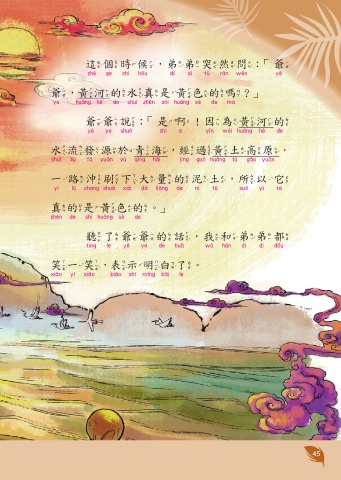 這個時候，弟弟突然問：「爺
zhè ge shí hòu dì di tú rán wèn yé
爺，黃河的水真是黃色的嗎？」
ye huáng hé de shuǐ zhēn shì huáng sè de ma
爺爺說：「是啊！因為黃河的
yé ye shuō shì a yīn wèi huáng hé de
水流發源於青海，經過黃土高原，
shuǐ liú fā yuán yú qīng hǎi jīng guò huáng tǔ gāo yuán
一路沖刷下大量的泥土，所以它
yí lù chōng shuā xià dà liàng de ní tǔ suǒ yǐ tā
真的是黃色的。」
zhēn de shì huáng sè de
聽了爺爺的話，我和弟弟都
tīng le yé ye de huà wǒ hàn dì di dōu
笑一笑，表示明白了。
xiào yí xiào biǎo shì míng bái le
45